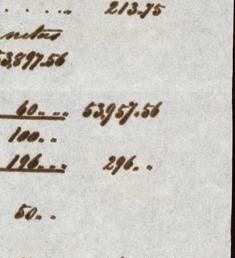 . . . . . .. 213.75
netas
53,897.56
60.... 53,957.56
100..
196.... 296. .
50. .